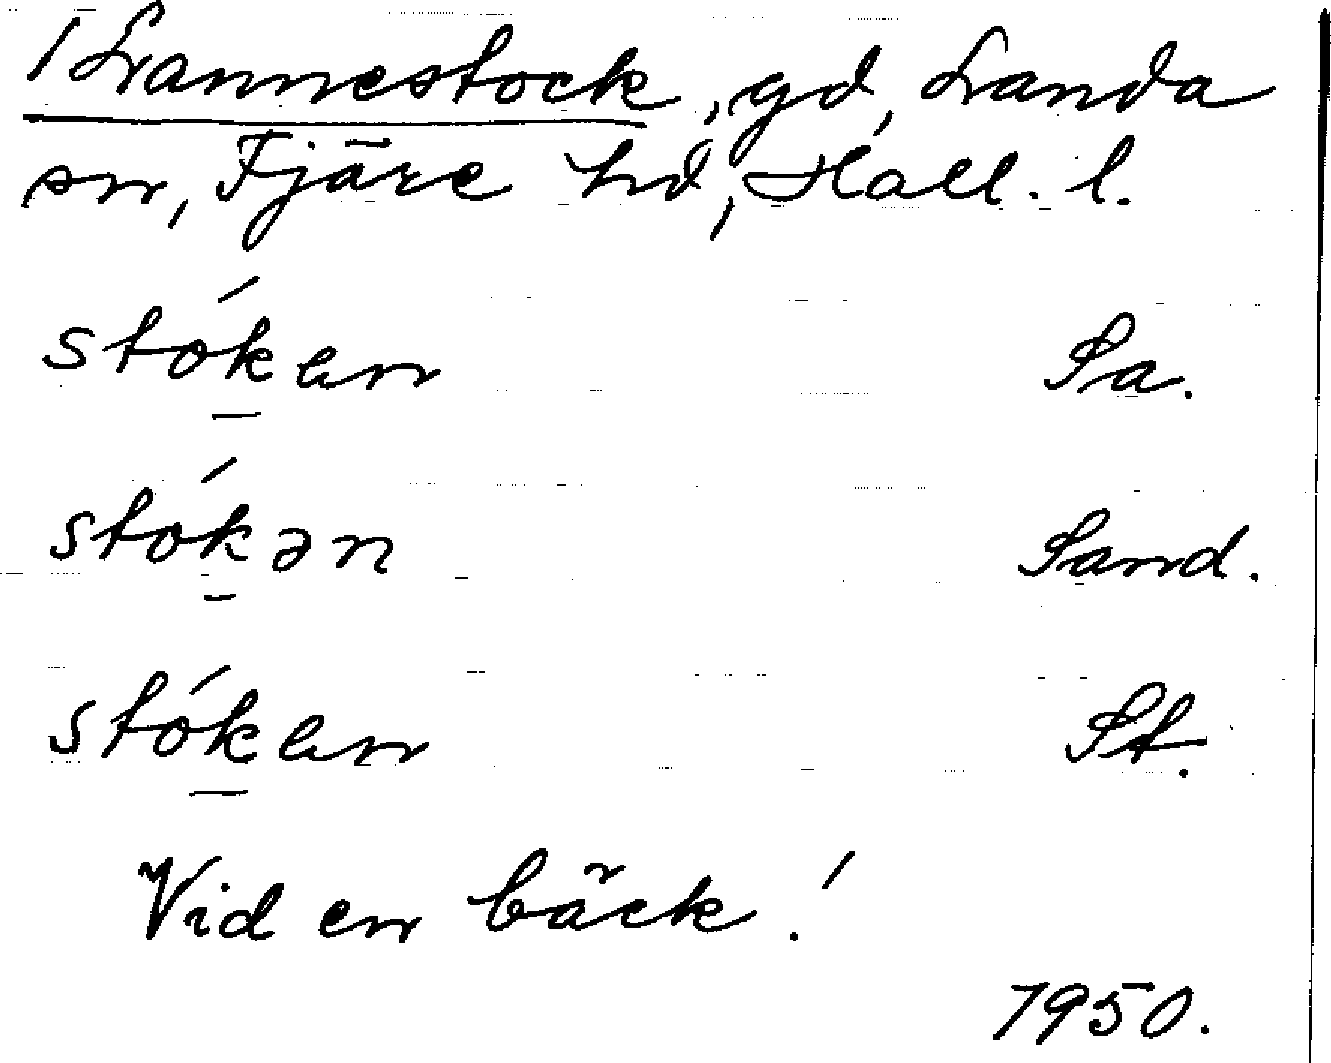 1 Lannestock, gd, Landa
sn, Fjäre hd, Hall. l.
stóken Sa.
stókən Sand.
stóken St.
Vid en bäck!
1950.